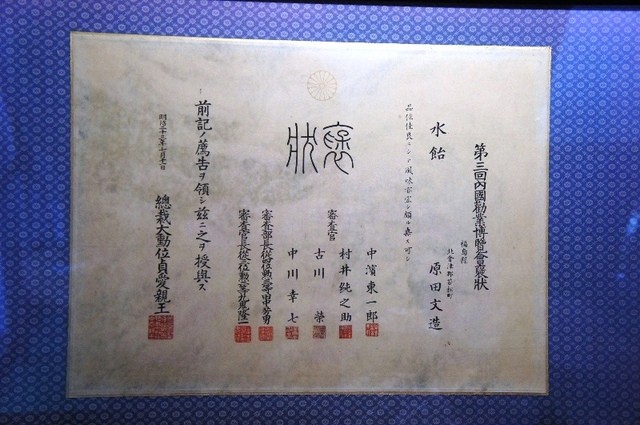 第三回內國勸業博覽會褒狀
福島縣
北會津郡若松町
原田文造
水飴
品位佳良ニシテ風味
頗ル嘉ス可シ
褒狀
審査官
中濱東一郎
村井純之助
古川榮
中川幸七
審査部長從
審査官長從
九鬼隆一
前記ノ薦告ヲ領シ玆ニ之ヲ授與ス
明治二十三年七月十一日
總裁大勳位貞愛親王